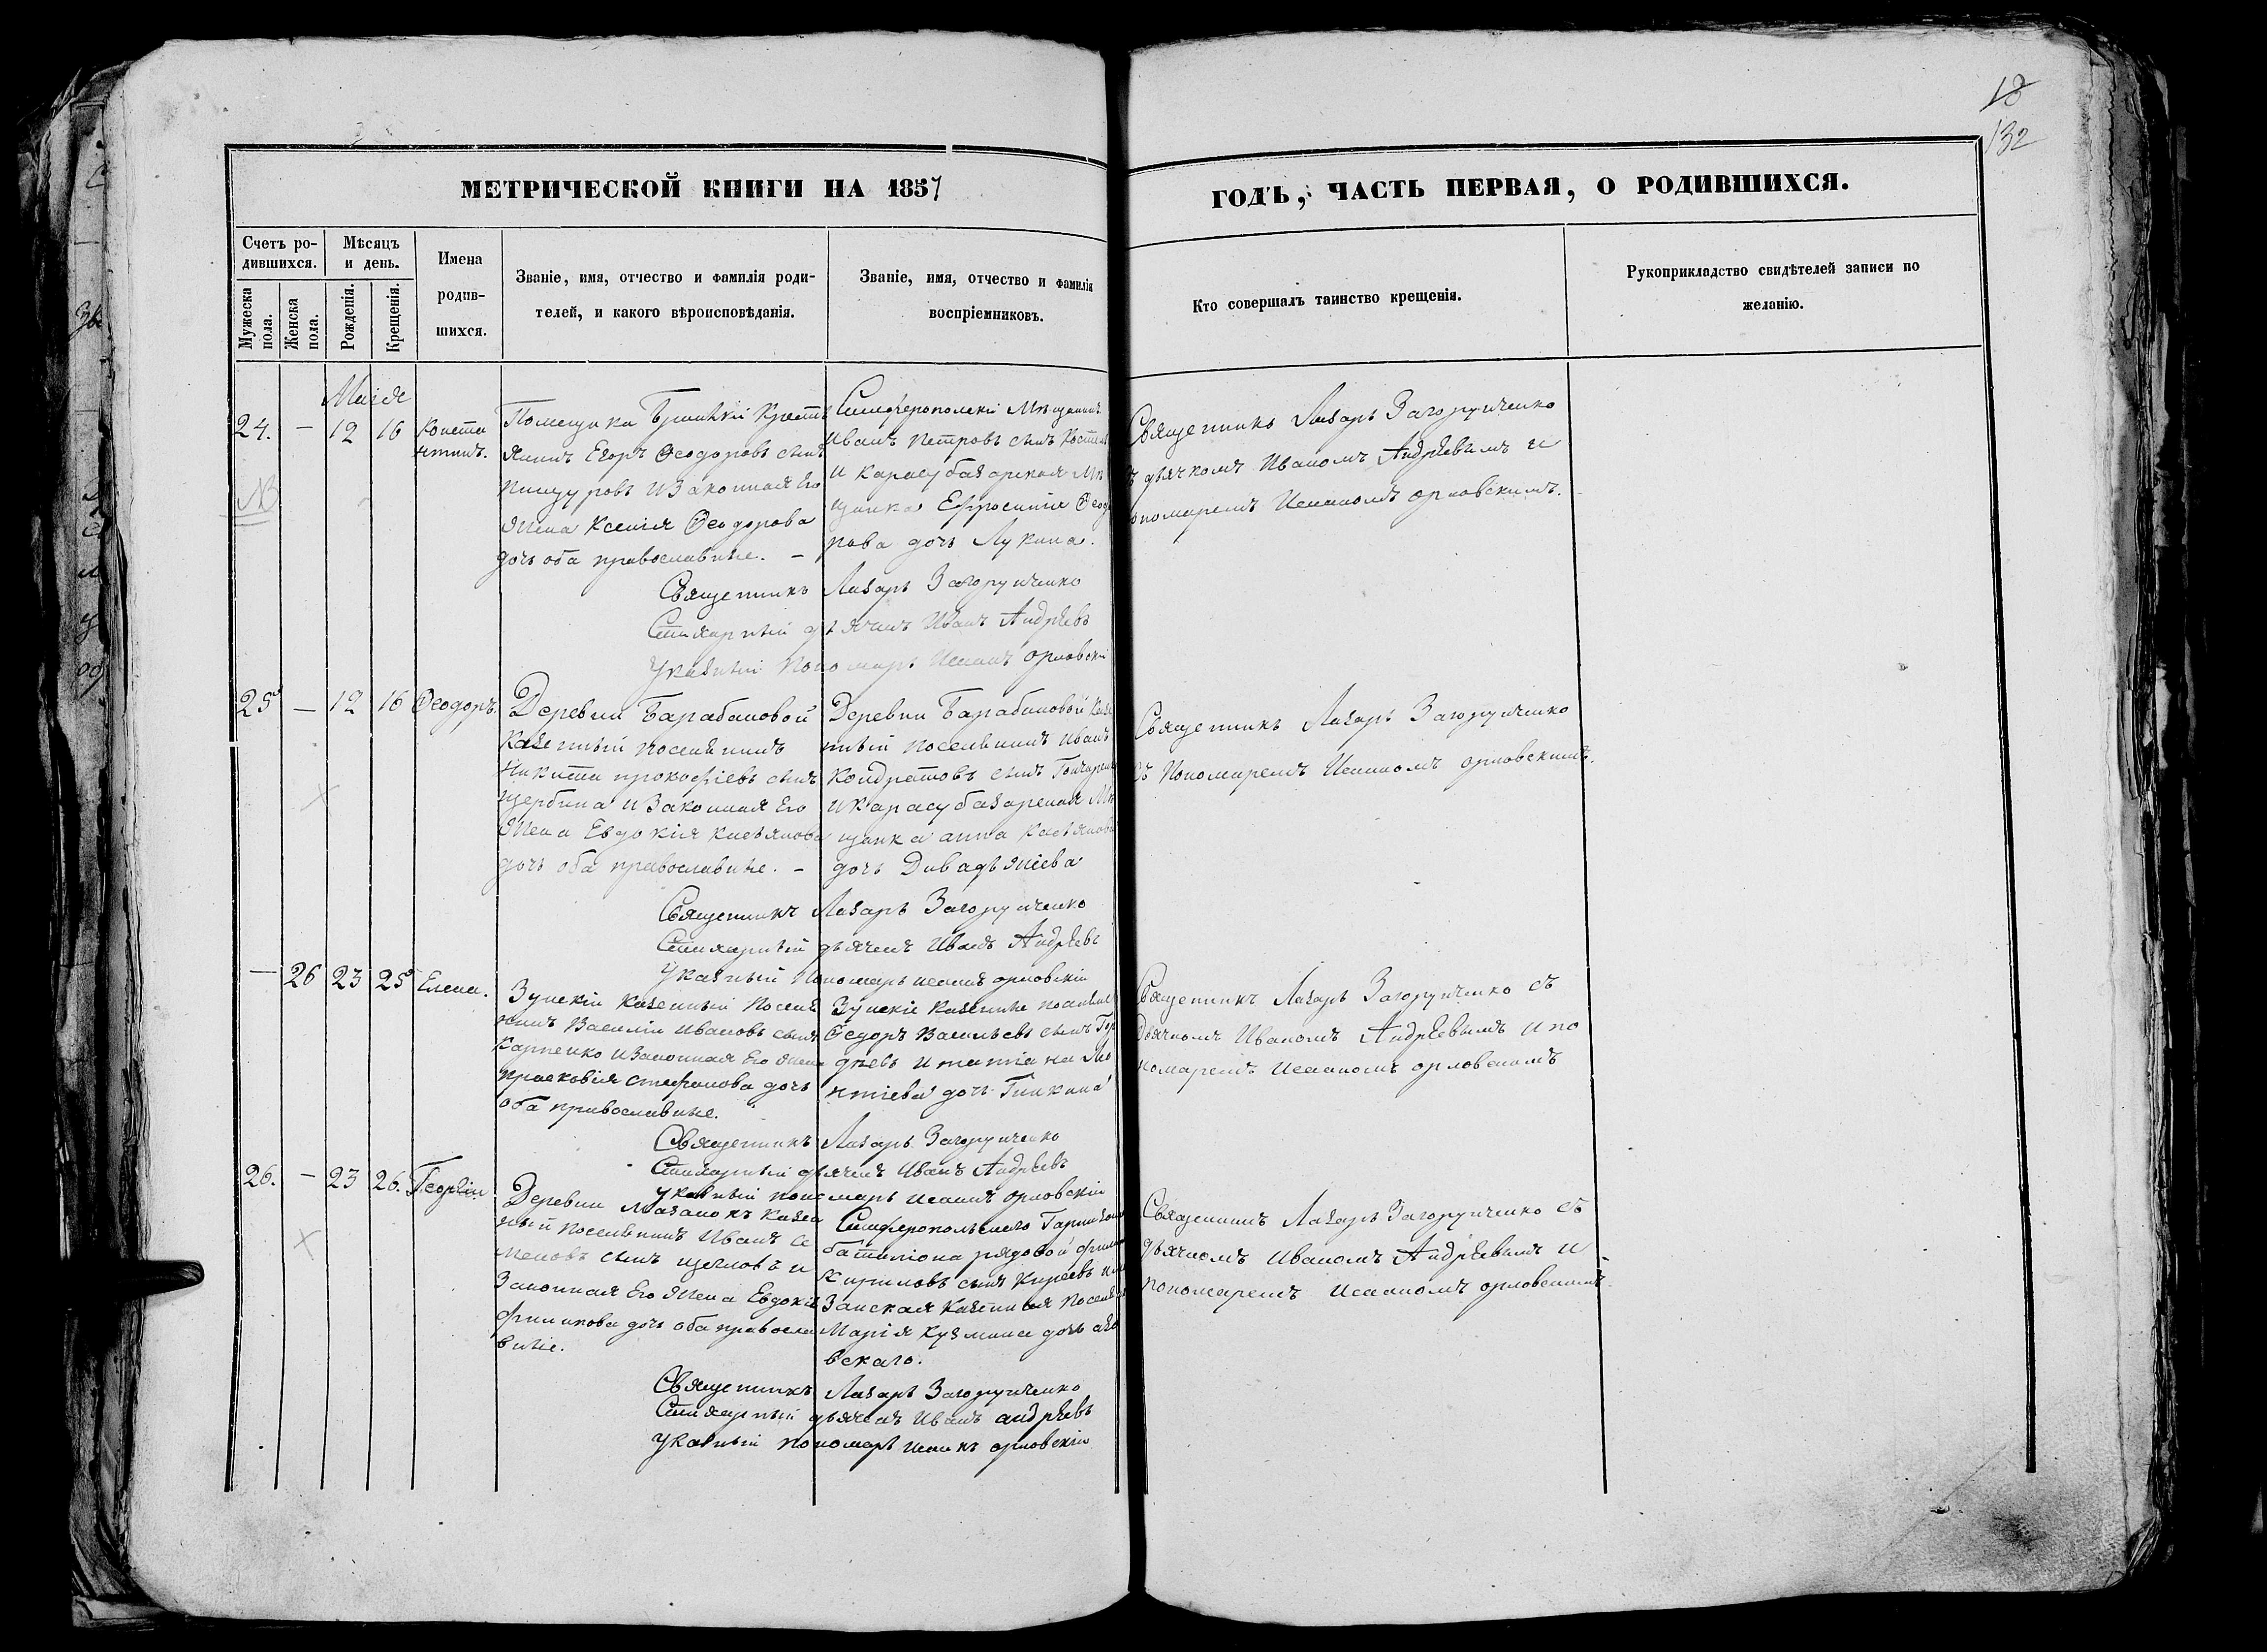 18
132
МЕТРИЧЕСКОЙ КНИГИ НА 1857
ГОДЪ, ЧАСТЬ ПЕРВАЯ, О РОДИВШИХСЯ.
Счетъ ро-
дившихся.
Мѣсяцъ
и день.
Имена
родив-
шихся.
Мужеска
пола.
Женска
пола.
Рожденія.
Крещенія.
Званіе, имя, отчество и фамилія роди-
телей, и какого вѣроисповѣданія.
Званіе, имя, отчество и фамилія
воспріемниковъ.
Кто совершалъ таинство крещенія.
Рукоприкладство свидѣтелей записи по
желанію.
Маія
24. — 12 16 Конста
нтинъ.
NB
Помещика Крестья
янинъ Егоръ Ѳеодоровъ сынъ
изаконная Его
Жена Ксенія Ѳеодорова
дочь оба православные. —
Симферополскій Мѣщанинъ
Иванъ Петровъ сынъ
и карасубазарская Мѣ
щанка Ефросинія Ѳеодо
рова дочь Лукина.
Священникъ Лазарь Загорунченко
съ дьячкомъ Иваномъ Андрѣевымъ и
пономаремъ Исааномъ орловскимъ.
Священникъ Лазарь Загорунченко
Стихарный дьячекъ Иванъ Андрѣевъ
Указный Пономарь Исаанъ орловскій
25 — 12 16 Ѳеодоръ.
Деревни Барабановой
Казенный поселянинъ
Никита прокофіевъ сынъ
щербина изаконная Его
Жена Евдокія касьянова
дочь оба православные. —
Деревни Барабановой Казе
нный поселянинъ Иванъ
Кондратовъ сынъ Гончаренко
и карасубазарская Мѣ
щанка анна касьянова
дочь
Священникъ Лазарь Загорунченко
съ Пономаремъ Исааномъ орловскимъ.
Священникъ Лазарь Загорунченко
Стихарный дьячекъ Иванъ Андрѣевъ
Указный Пономарь исаанъ орловскій
— 26 23 25 Елена.
Зуйскій казенный Поселя
нинъ Василій Ивановъ сынъ
Карпенко изаконная Его жена
прасковія стефанова дочь
оба православные.
Зуйскіе казенные поселяне
Ѳедоръ Васильевъ сынъ Гор
дѣевъ и татіана Ле
нтіева дочь
Священникъ Лазарь Загорунченко съ
Дьячкомъ Иваномъ Андрѣевымъ и по
номаремъ Исааномъ орловскомъ
Священникъ Лазарь Загорунченко
Стихарный дьячекъ Иванъ Андрѣевъ
указный пономарь исаанъ орловскій
26. — 23 26. Георгій
Деревни Мазанокъ казен
ный поселянинъ Иванъ се
меновъ сынъ щегловъ и
Законная Его жена Евдокія
филипова дочь оба правосла
вные.
Симферопольскаго Гарнизон
баталіона рядовой
Кириловъ сынъ Киреевъ
казенная Поселян
Марія Кузмина дочь
вскаго.
Священникъ Лазарь Загорунченко съ
дьячкомъ Иваномъ Андрѣевымъ и
пономаремъ Исааномъ орловскимъ
Священникъ Лазарь Загорунченко
Стихарный дьячекъ Иванъ андрѣевъ
указный пономарь исаанъ орловскій